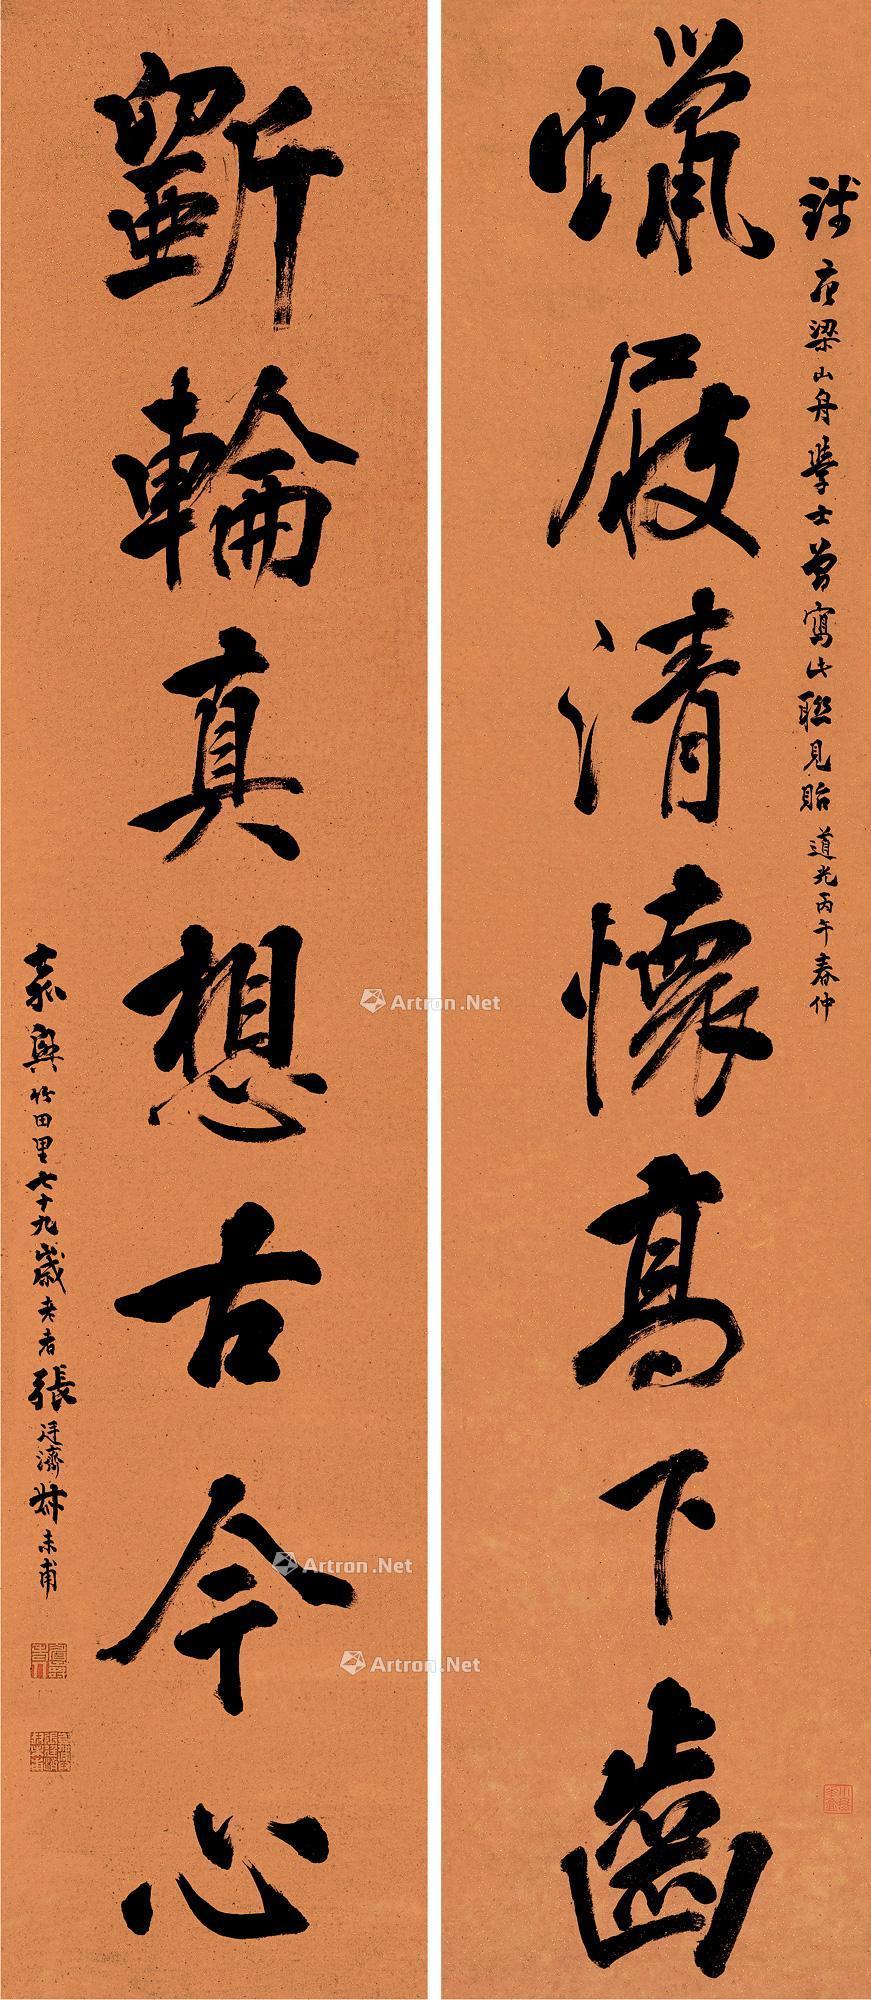 梁山舟學士曾寫此聯見貽 道光丙午春仲
蠟屐清懷高下齒
斲輪真想古今心
嘉興竹田里七十九歲老者張廷濟叔未甫
Artron.Net
Artron.Net
Artron.Net